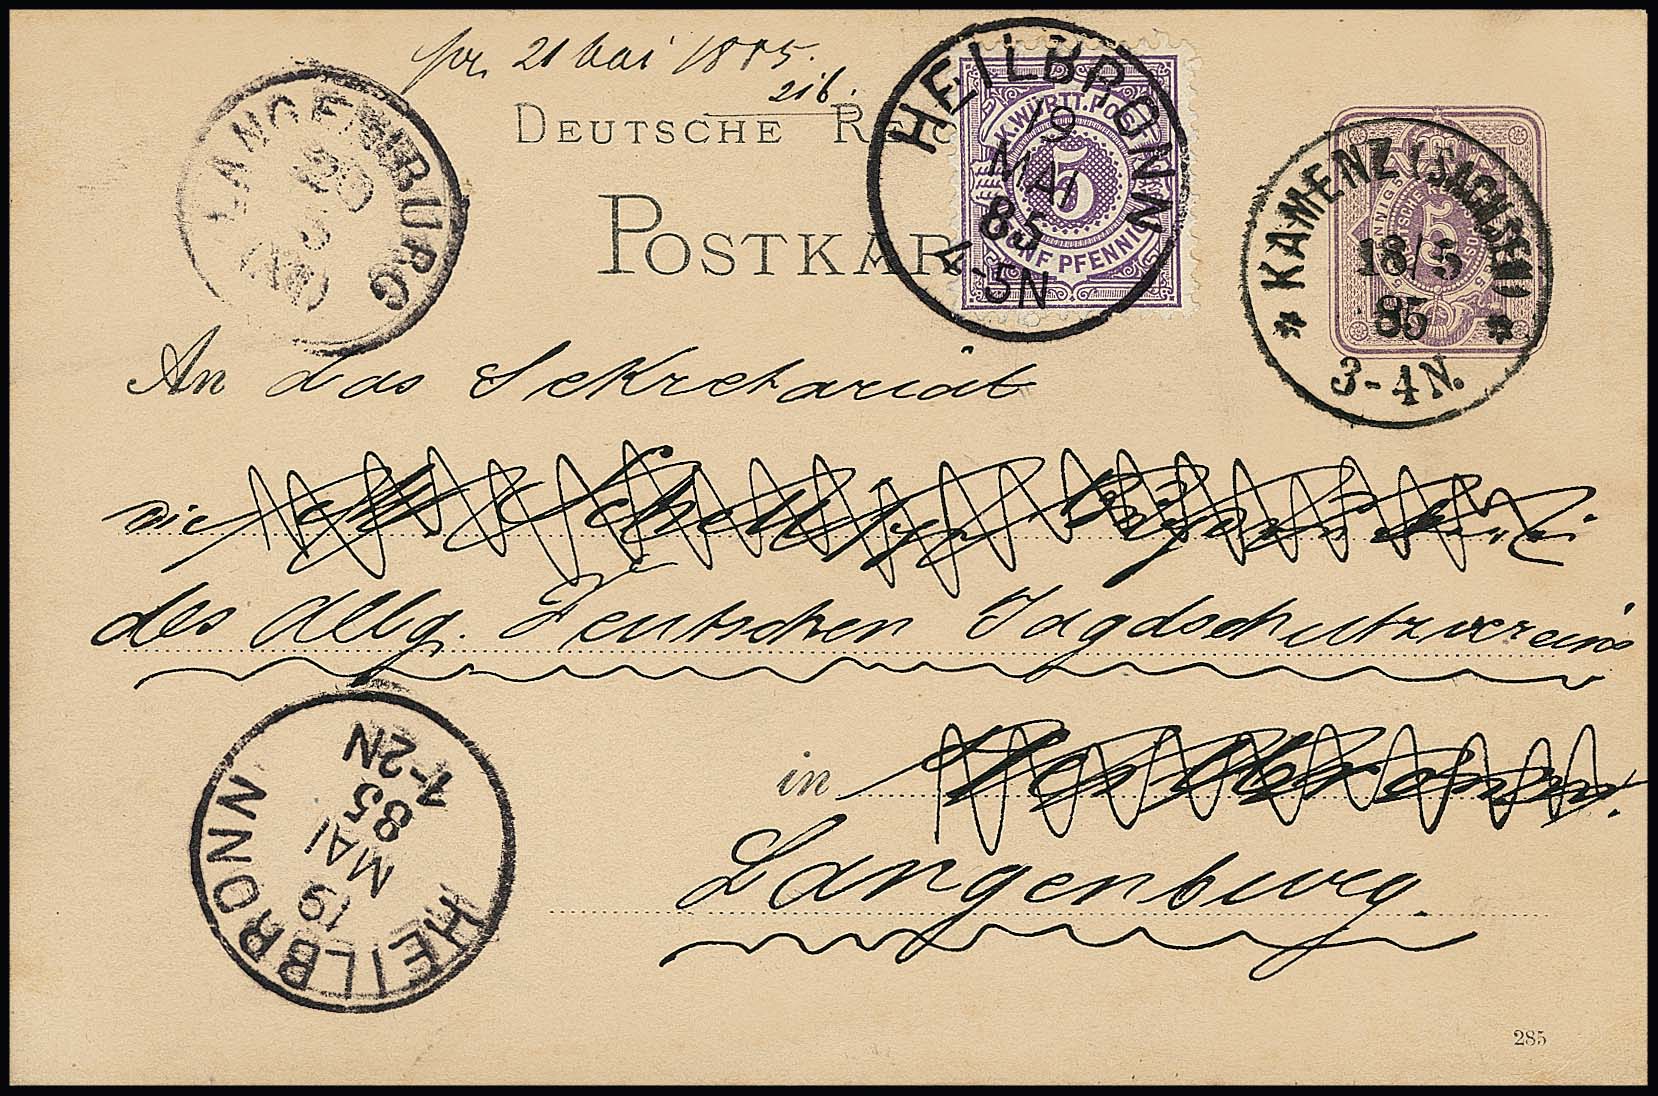 21 Mai 1885.
216.
DEUTSCHE REIC
POSTKAR
LANGENBURG
20
5
HEILBRONN
19
MAI
85
4-5N
K.WÜRTT.POST
5
FÜNF PFENNIG
KAMENZ (SACHSEN)
18/5
85
3-4N.
5
An das Sekretariat
die
des Allg. Deutschen Jagdschutzvereins
in Heilbronn.
Langenburg.
HEILBRONN
19
MAI
85
1-2N
285